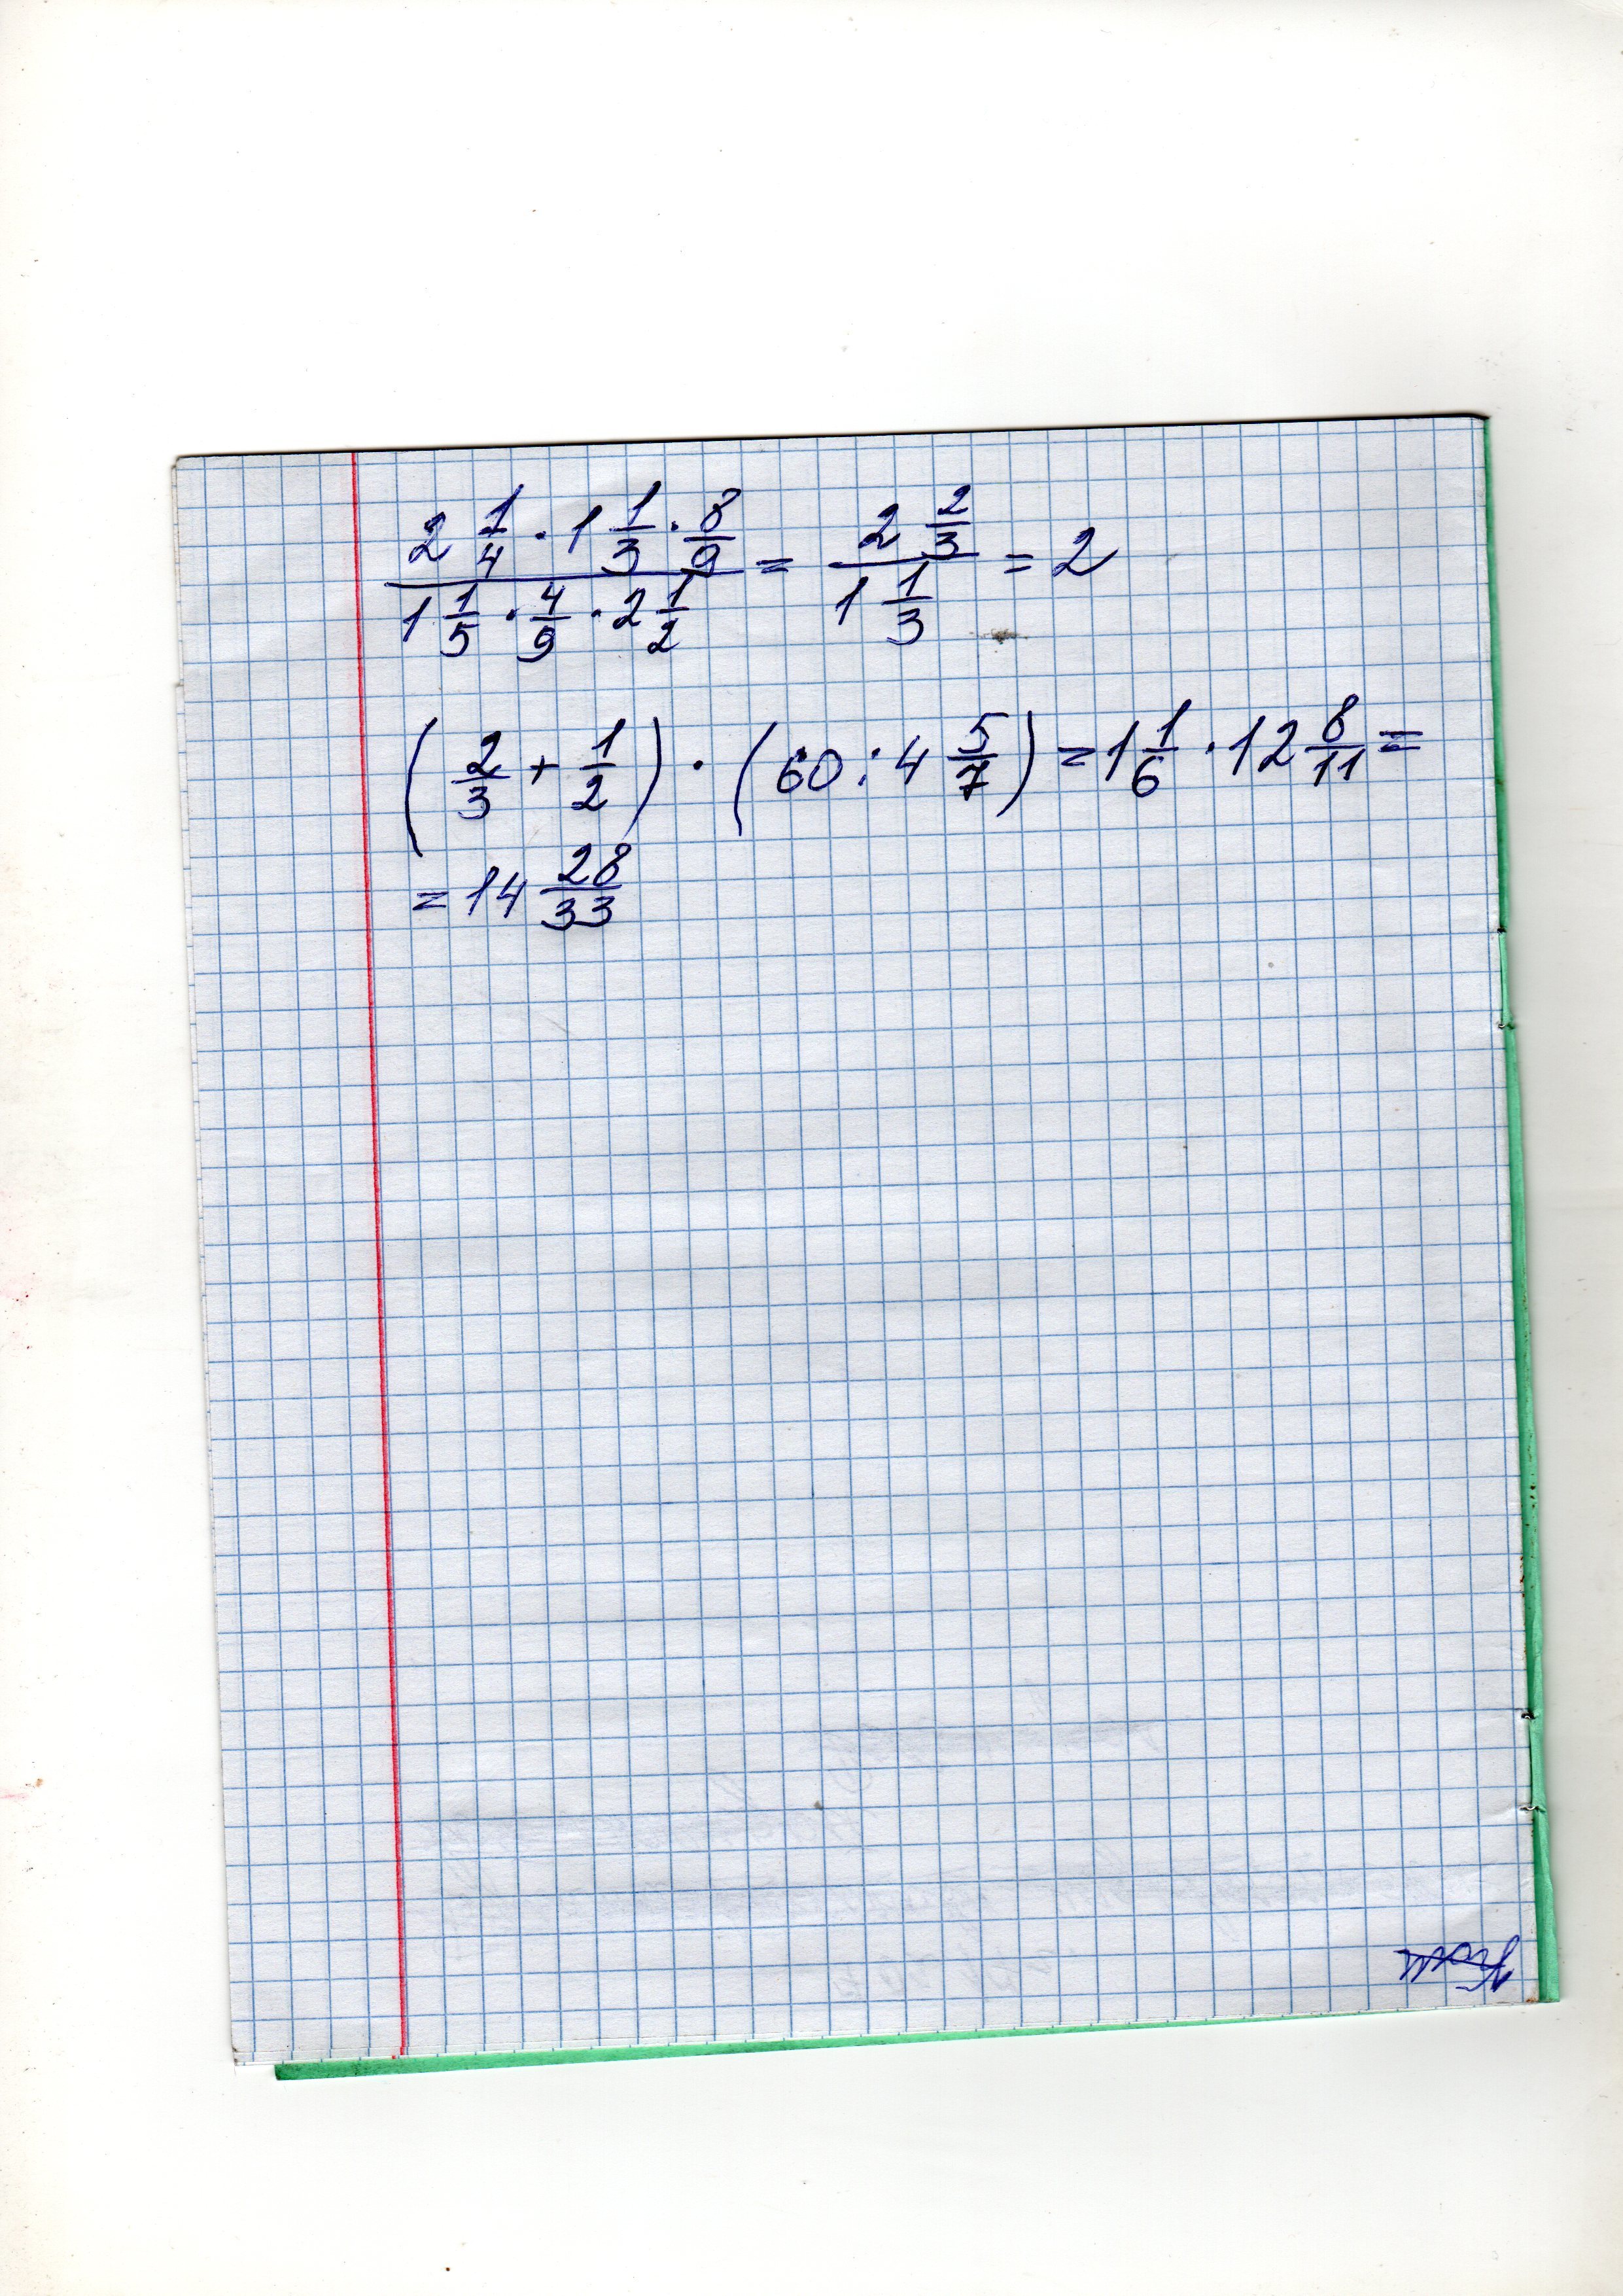 (2 1/4 · 1 1/3 · 8/9) / (1 1/5 · 4/9 · 2 1/2) = (2 2/3) / (1 1/3) = 2
(2/3 + 1/2) · (60 : 4 5/7) = 1 1/6 · 12 8/11 =
= 14 28/33